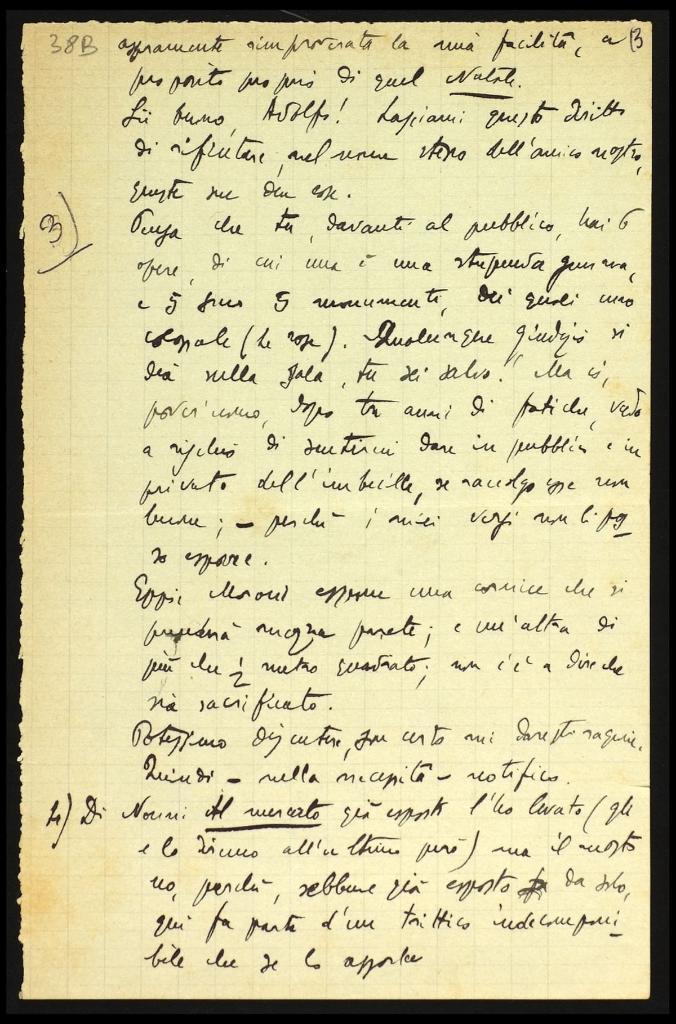 38B aspramente rimproverata la mia facilità, a 3
proposito proprio di quel Natale.
Sii buono, Adolfo! Lasciami questo diritto
di rifiutare, nel nome stesso dell'amico nostro,
queste sue due cose.
3) Pensa che tu, davanti al pubblico, hai 6
opere, di cui una è una stupenda
e 5 sono 5 monumenti, dei quali uno
colossale (Le rose). Qualunque giudizio si
dia sulla sala, tu sei salvo! Ma io,
pover'uomo, dopo tre anni di fatiche, vado
a rischio di sentirmi dare in pubblico e in
privato dell'imbecille, se raccolgo cose non
buone; – perché i miei versi non li pos
so esporre.
Eppoi Moroni espone una cornice che si
prenderà mezza parete; e un'altra di
più che ½ metro quadrato; non c'è a dire che
sia sacrificato.
Potessimo discutere, son certo mi daresti ragione.
Quindi – nella necessità – notifico.
4) Di Nonni Al mercato già esposto l'ho levato (gli
e lo diremo all'ultimo però) ma il nostro
no, perché, sebbene già esposto da solo,
qui fa parte d'un trittico indecomponi
bile che se lo apposta